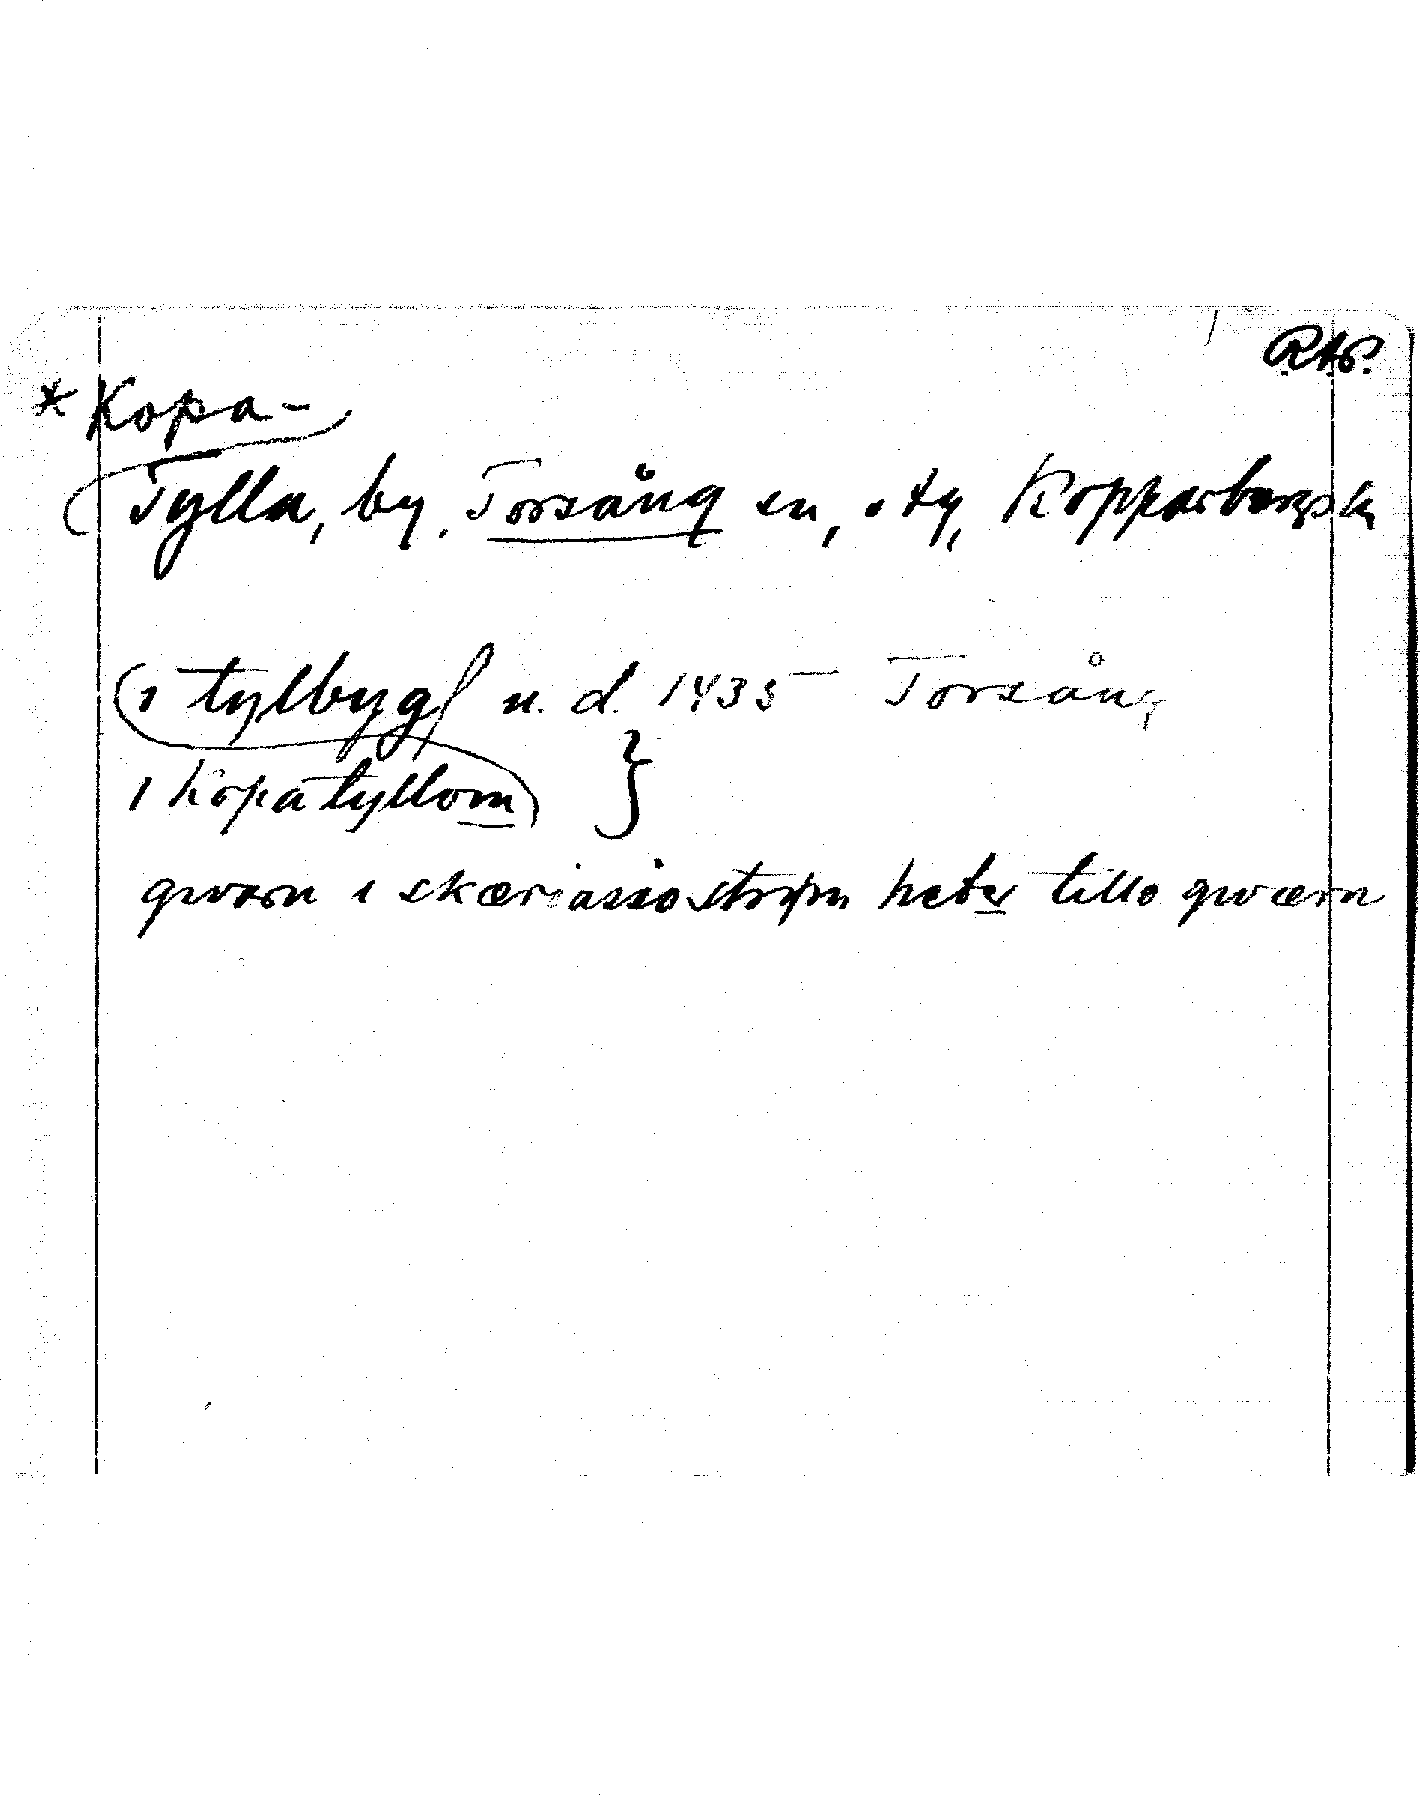 R.A.P.
* Kopa-
Tylla, by. Torsång sn, o tg, Kopparbergs län
i tylbygf u. d. 1435 Torsång
i kopatyllom }
qwærn i skæriassioströpn heter tillo qwærn